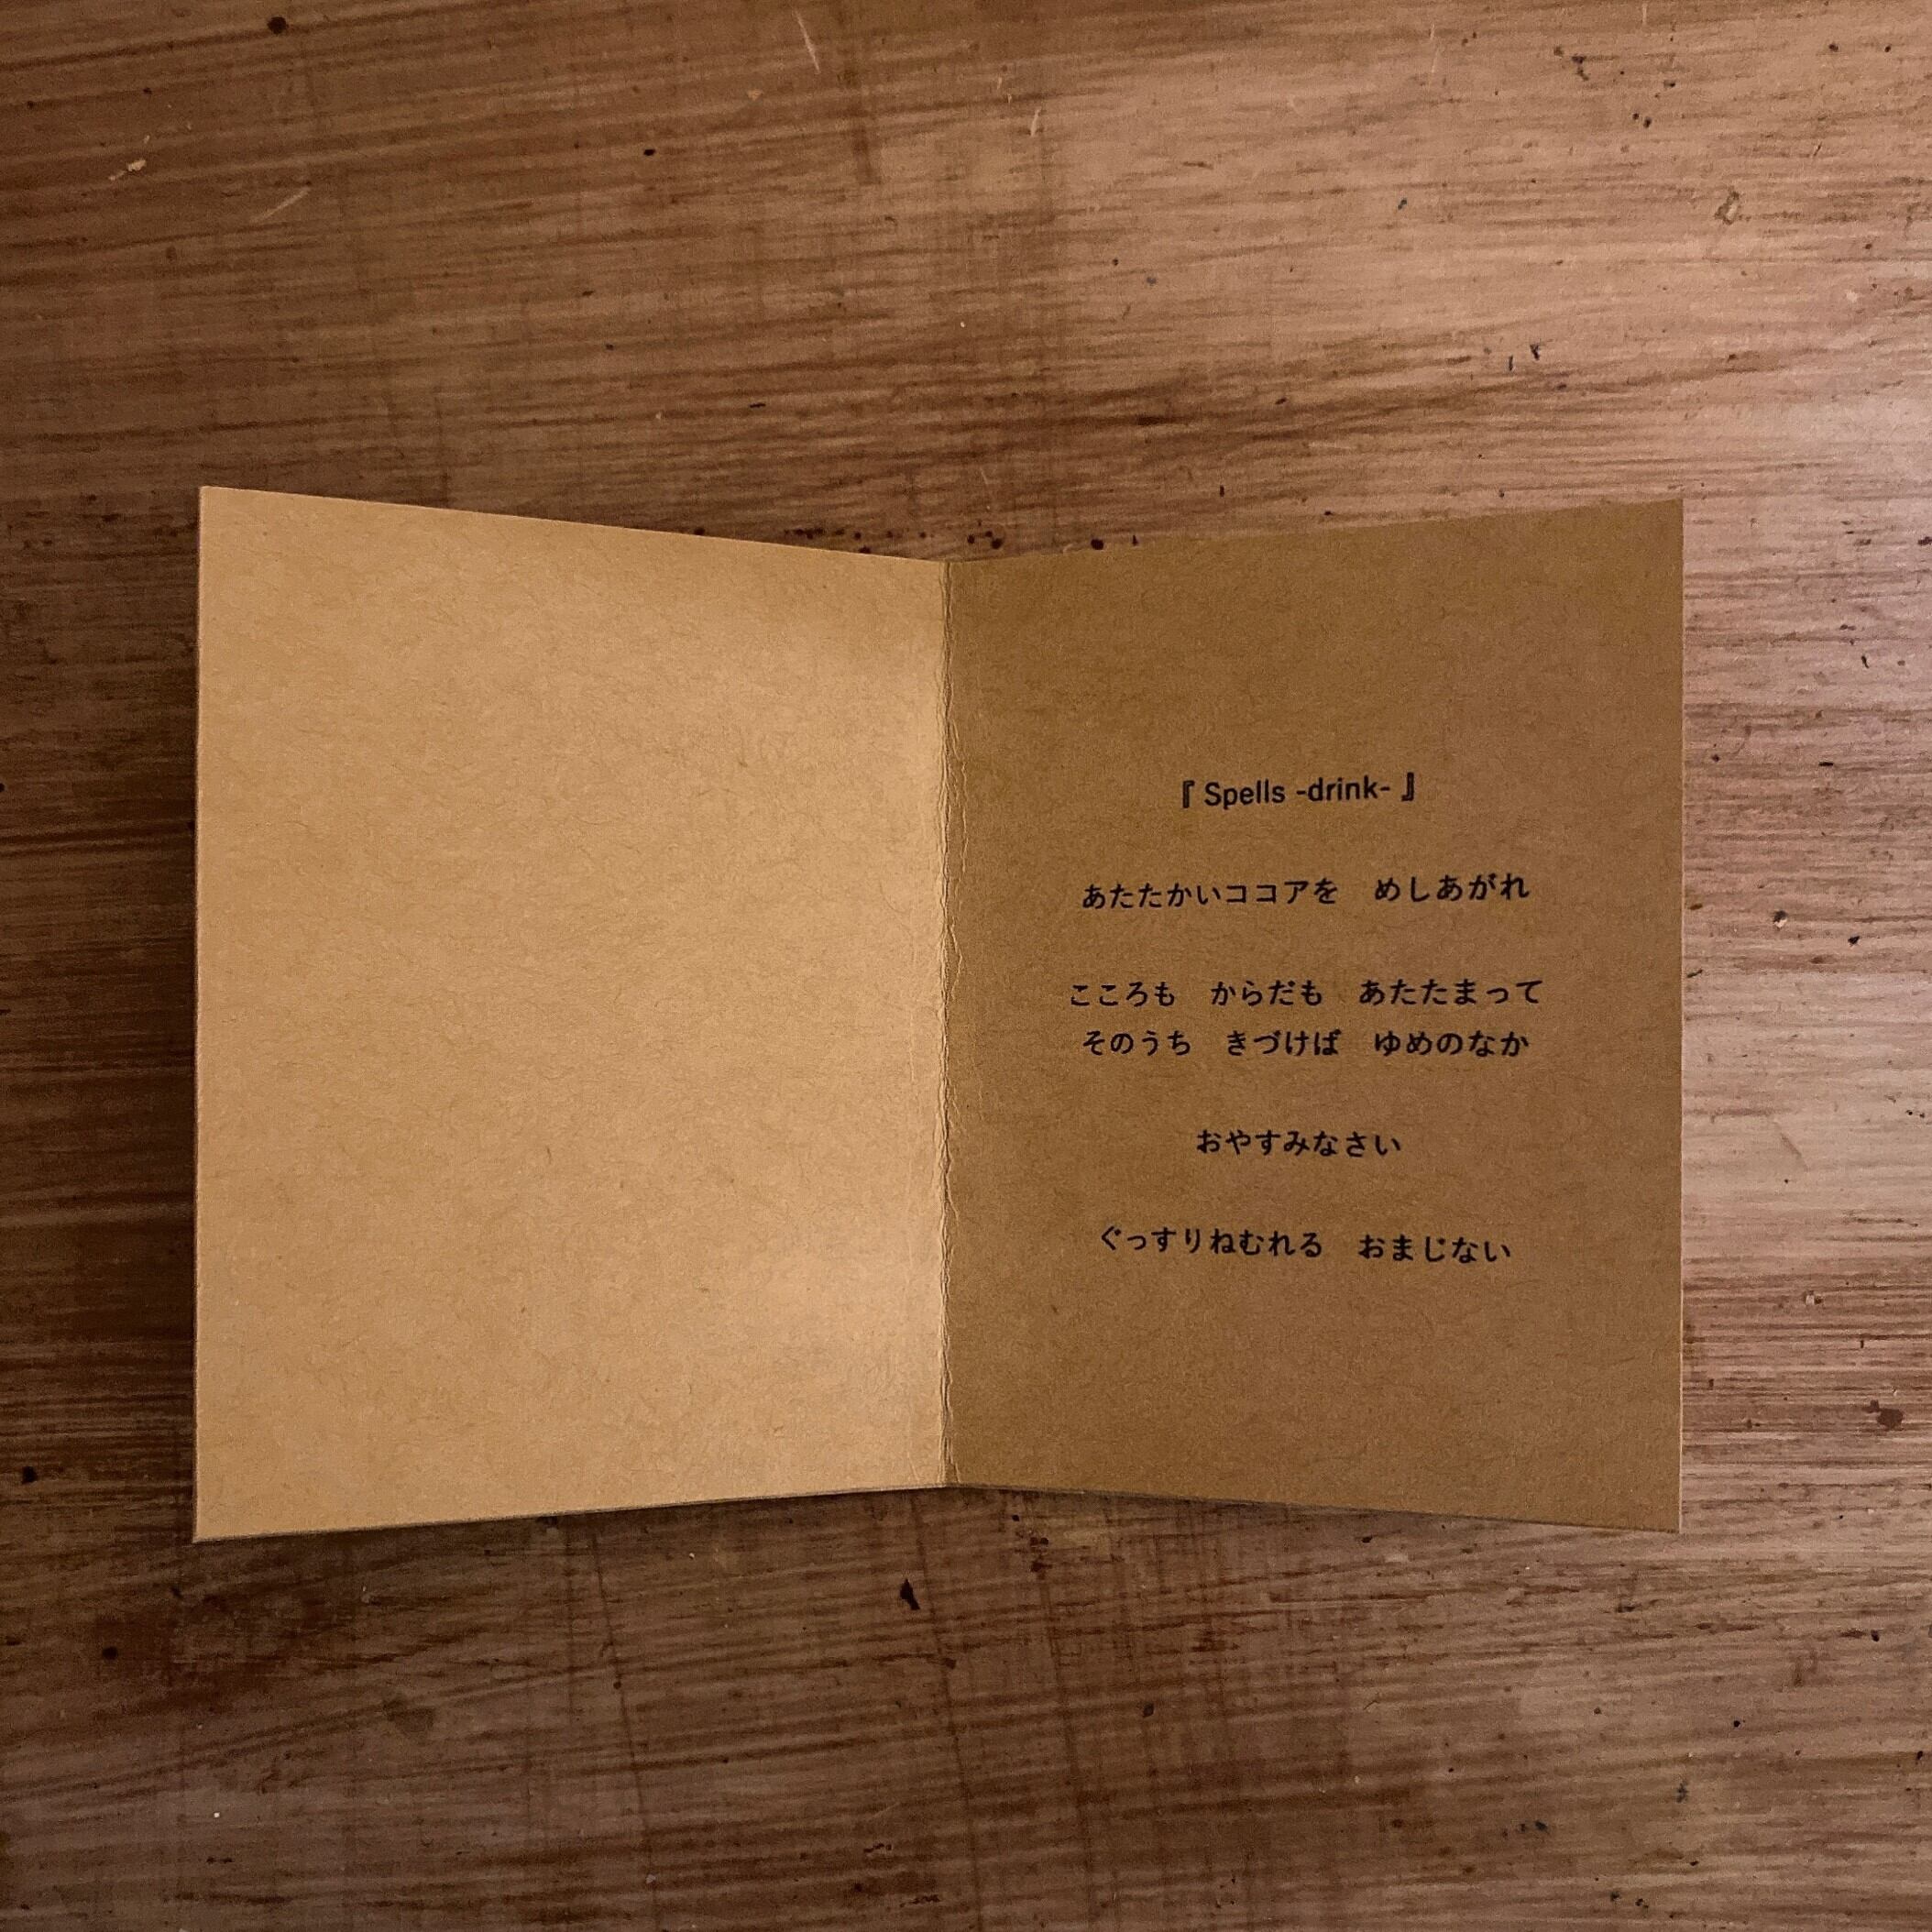 『 Spells -drink- 』
あたたかいココアを　めしあがれ
こころも　からだも　あたたまって
そのうち　きづけば　ゆめのなか
おやすみなさい
ぐっすりねむれる　おまじない